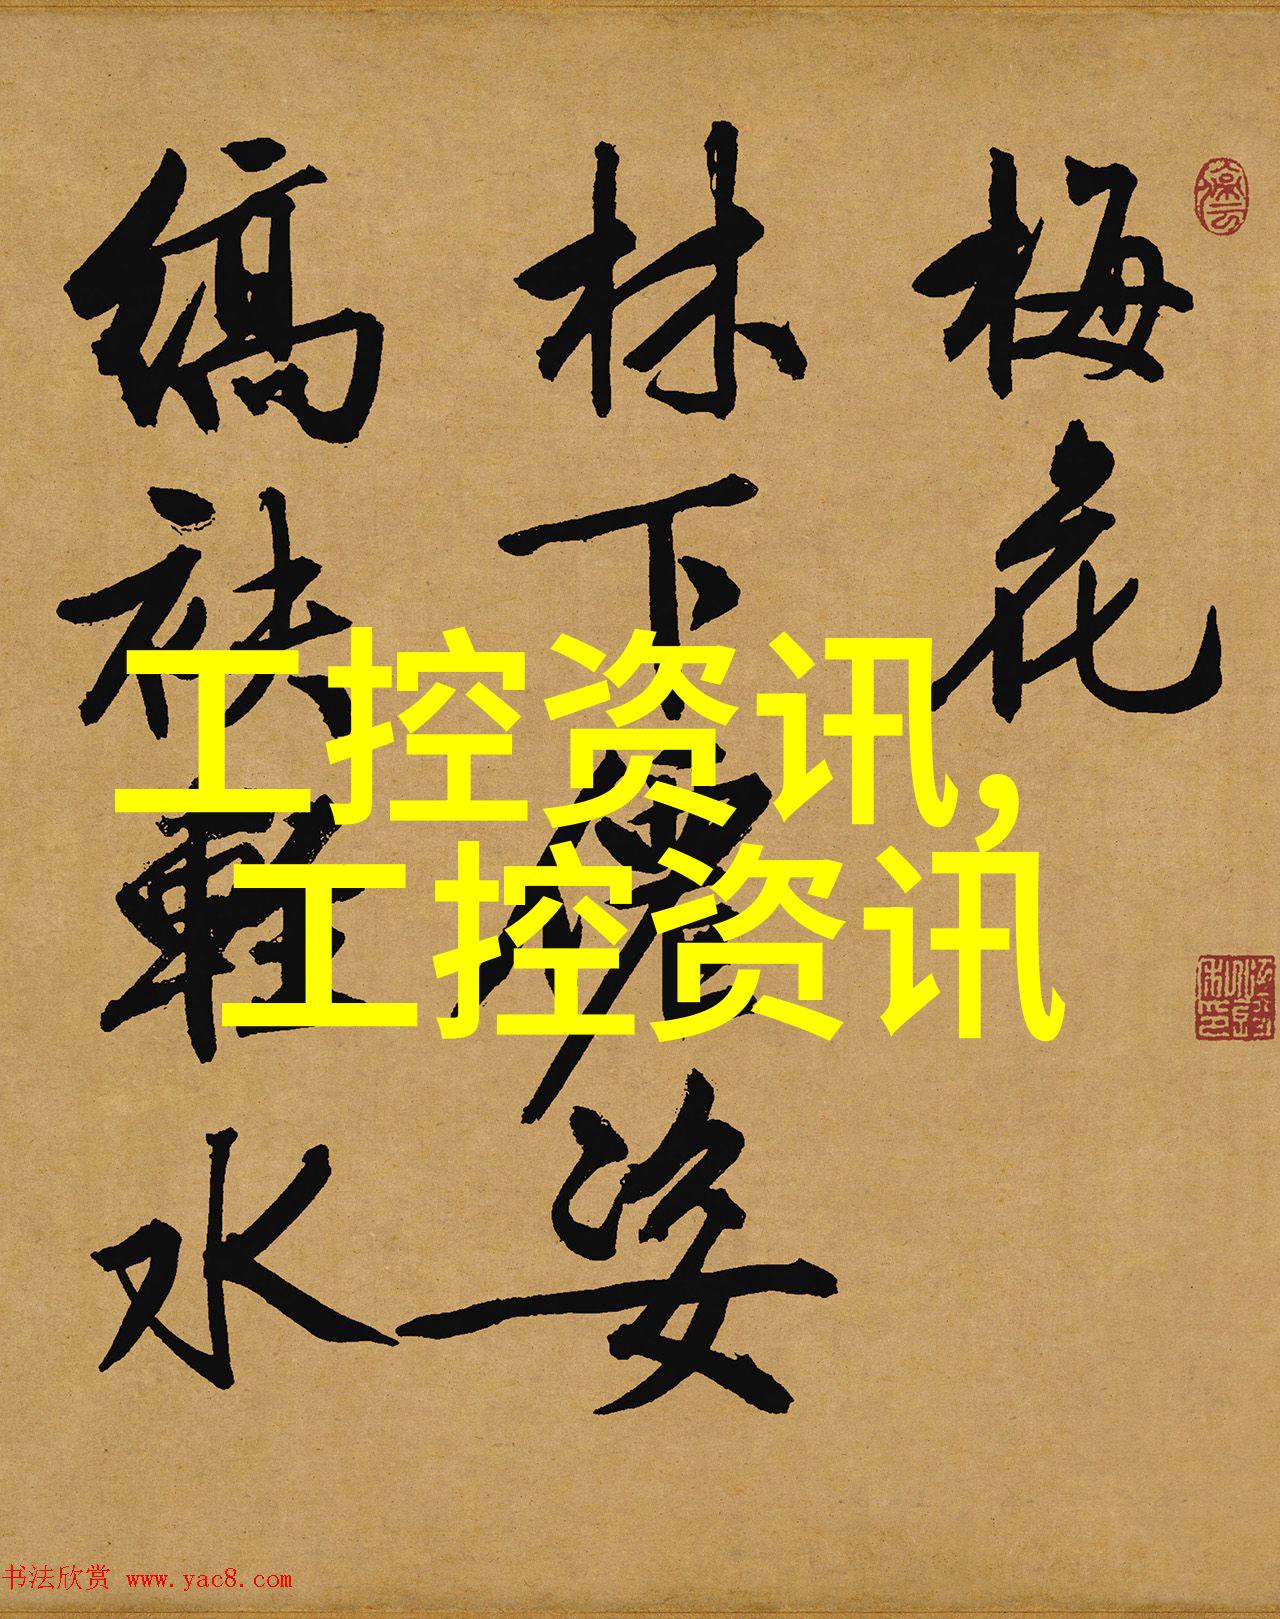 梅花
林下儂姿
縞袂輕水
工控资讯,
工控资讯
书法欣赏 www.yac8.com